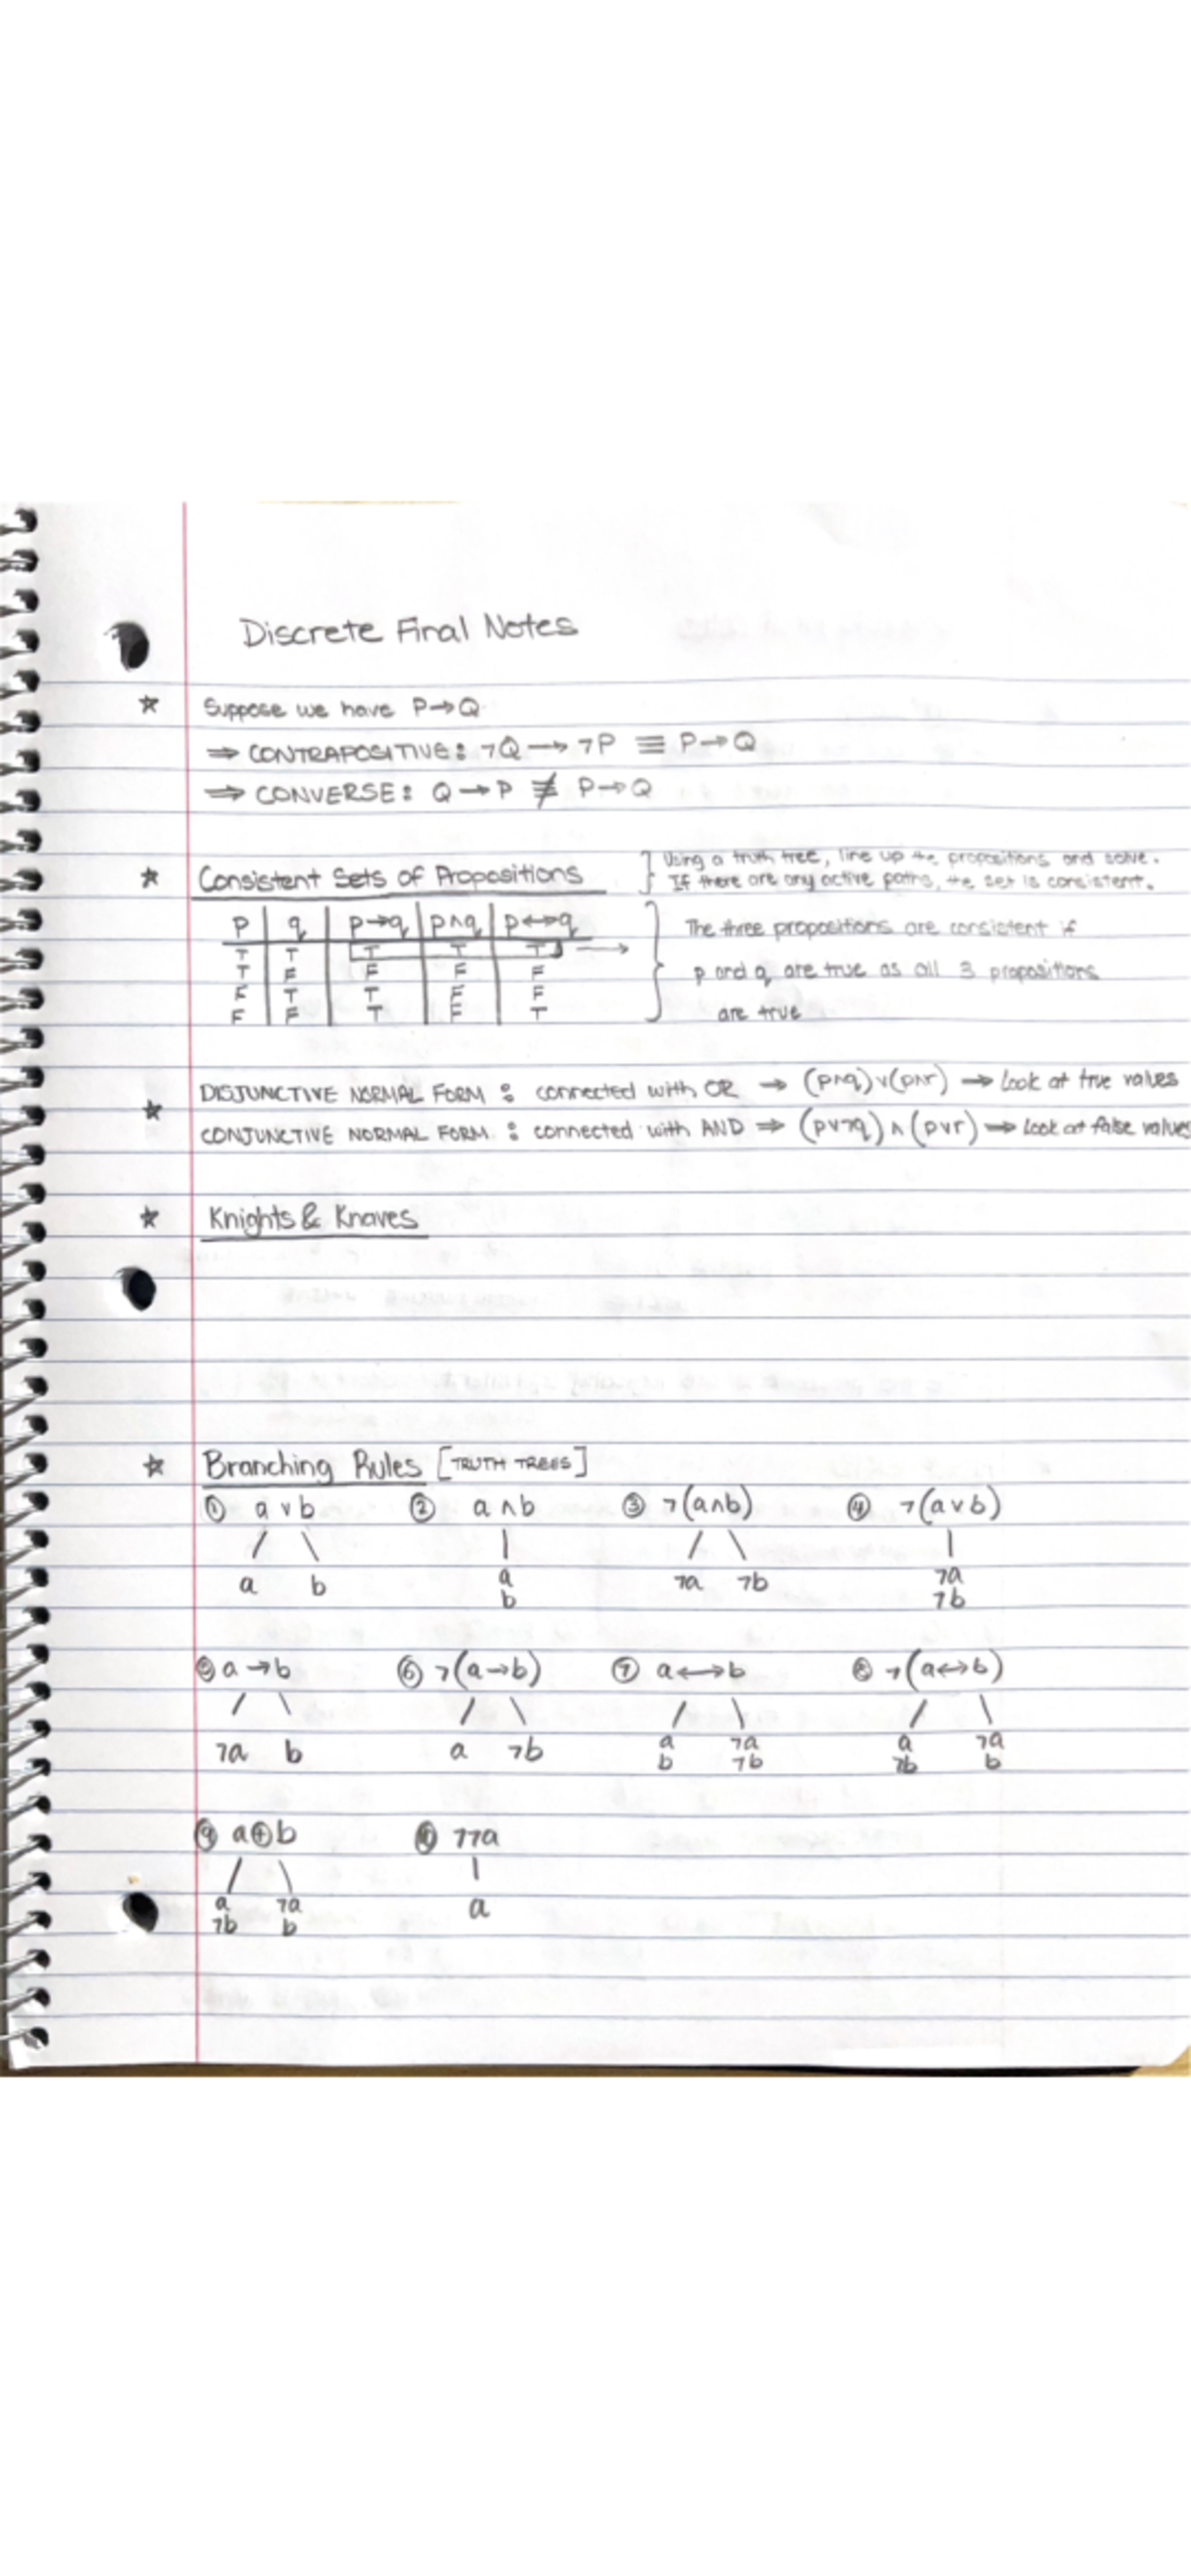 Discrete Final Notes
☆ Suppose we have P→Q
⇒ CONTRAPOSITIVE: ¬Q → ¬P ≡ P→Q
⇒ CONVERSE: Q→P ≢ P→Q
☆ Consistent Sets of Propositions } Using a truth tree, line up the propositions and solve.
If there are any active paths, the set is consistent.
p | q | p→q | p∧q | p↔q
T | T | T | T | T → } The three propositions are consistent if
T | F | F | F | F p and q are true as all 3 propositions
F | T | T | F | F are true
F | F | T | F | T
☆ DISJUNCTIVE NORMAL FORM: connected with OR → (p∧q)∨(p∧r) → Look at true values
CONJUNCTIVE NORMAL FORM: connected with AND ⇒ (p∨¬q)∧(p∨r) ⇒ Look at false values
☆ Knights & Knaves
☆ Branching Rules [TRUTH TREES]
① a∨b ② a∧b ③ ¬(a∧b) ④ ¬(a∨b)
/ \ | / \ |
a b a ¬a ¬b ¬a
b ¬b
⑤ a→b ⑥ ¬(a→b) ⑦ a↔b ⑧ ¬(a↔b)
/ \ / \ / \ / \
¬a b a ¬b a ¬a a ¬a
b ¬b ¬b b
⑨ a⊕b ⑩ ¬¬a
/ \ |
a ¬a a
¬b b